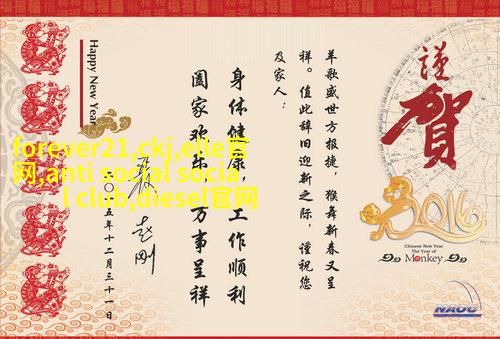 謹
賀
2016
Chinese New Year
The Year of
Monkey
NAOC
羊歌盛世方报捷，猴舞新春又呈
祥。值此辞旧迎新之际，谨祝您
及家人：
身体健康，工作顺利
阖家欢乐，万事呈祥
赵刚
二〇一五年十二月三十一日
Happy New Year
forever21,ckj,elle官
网,anti social socia
l club,diesel官网